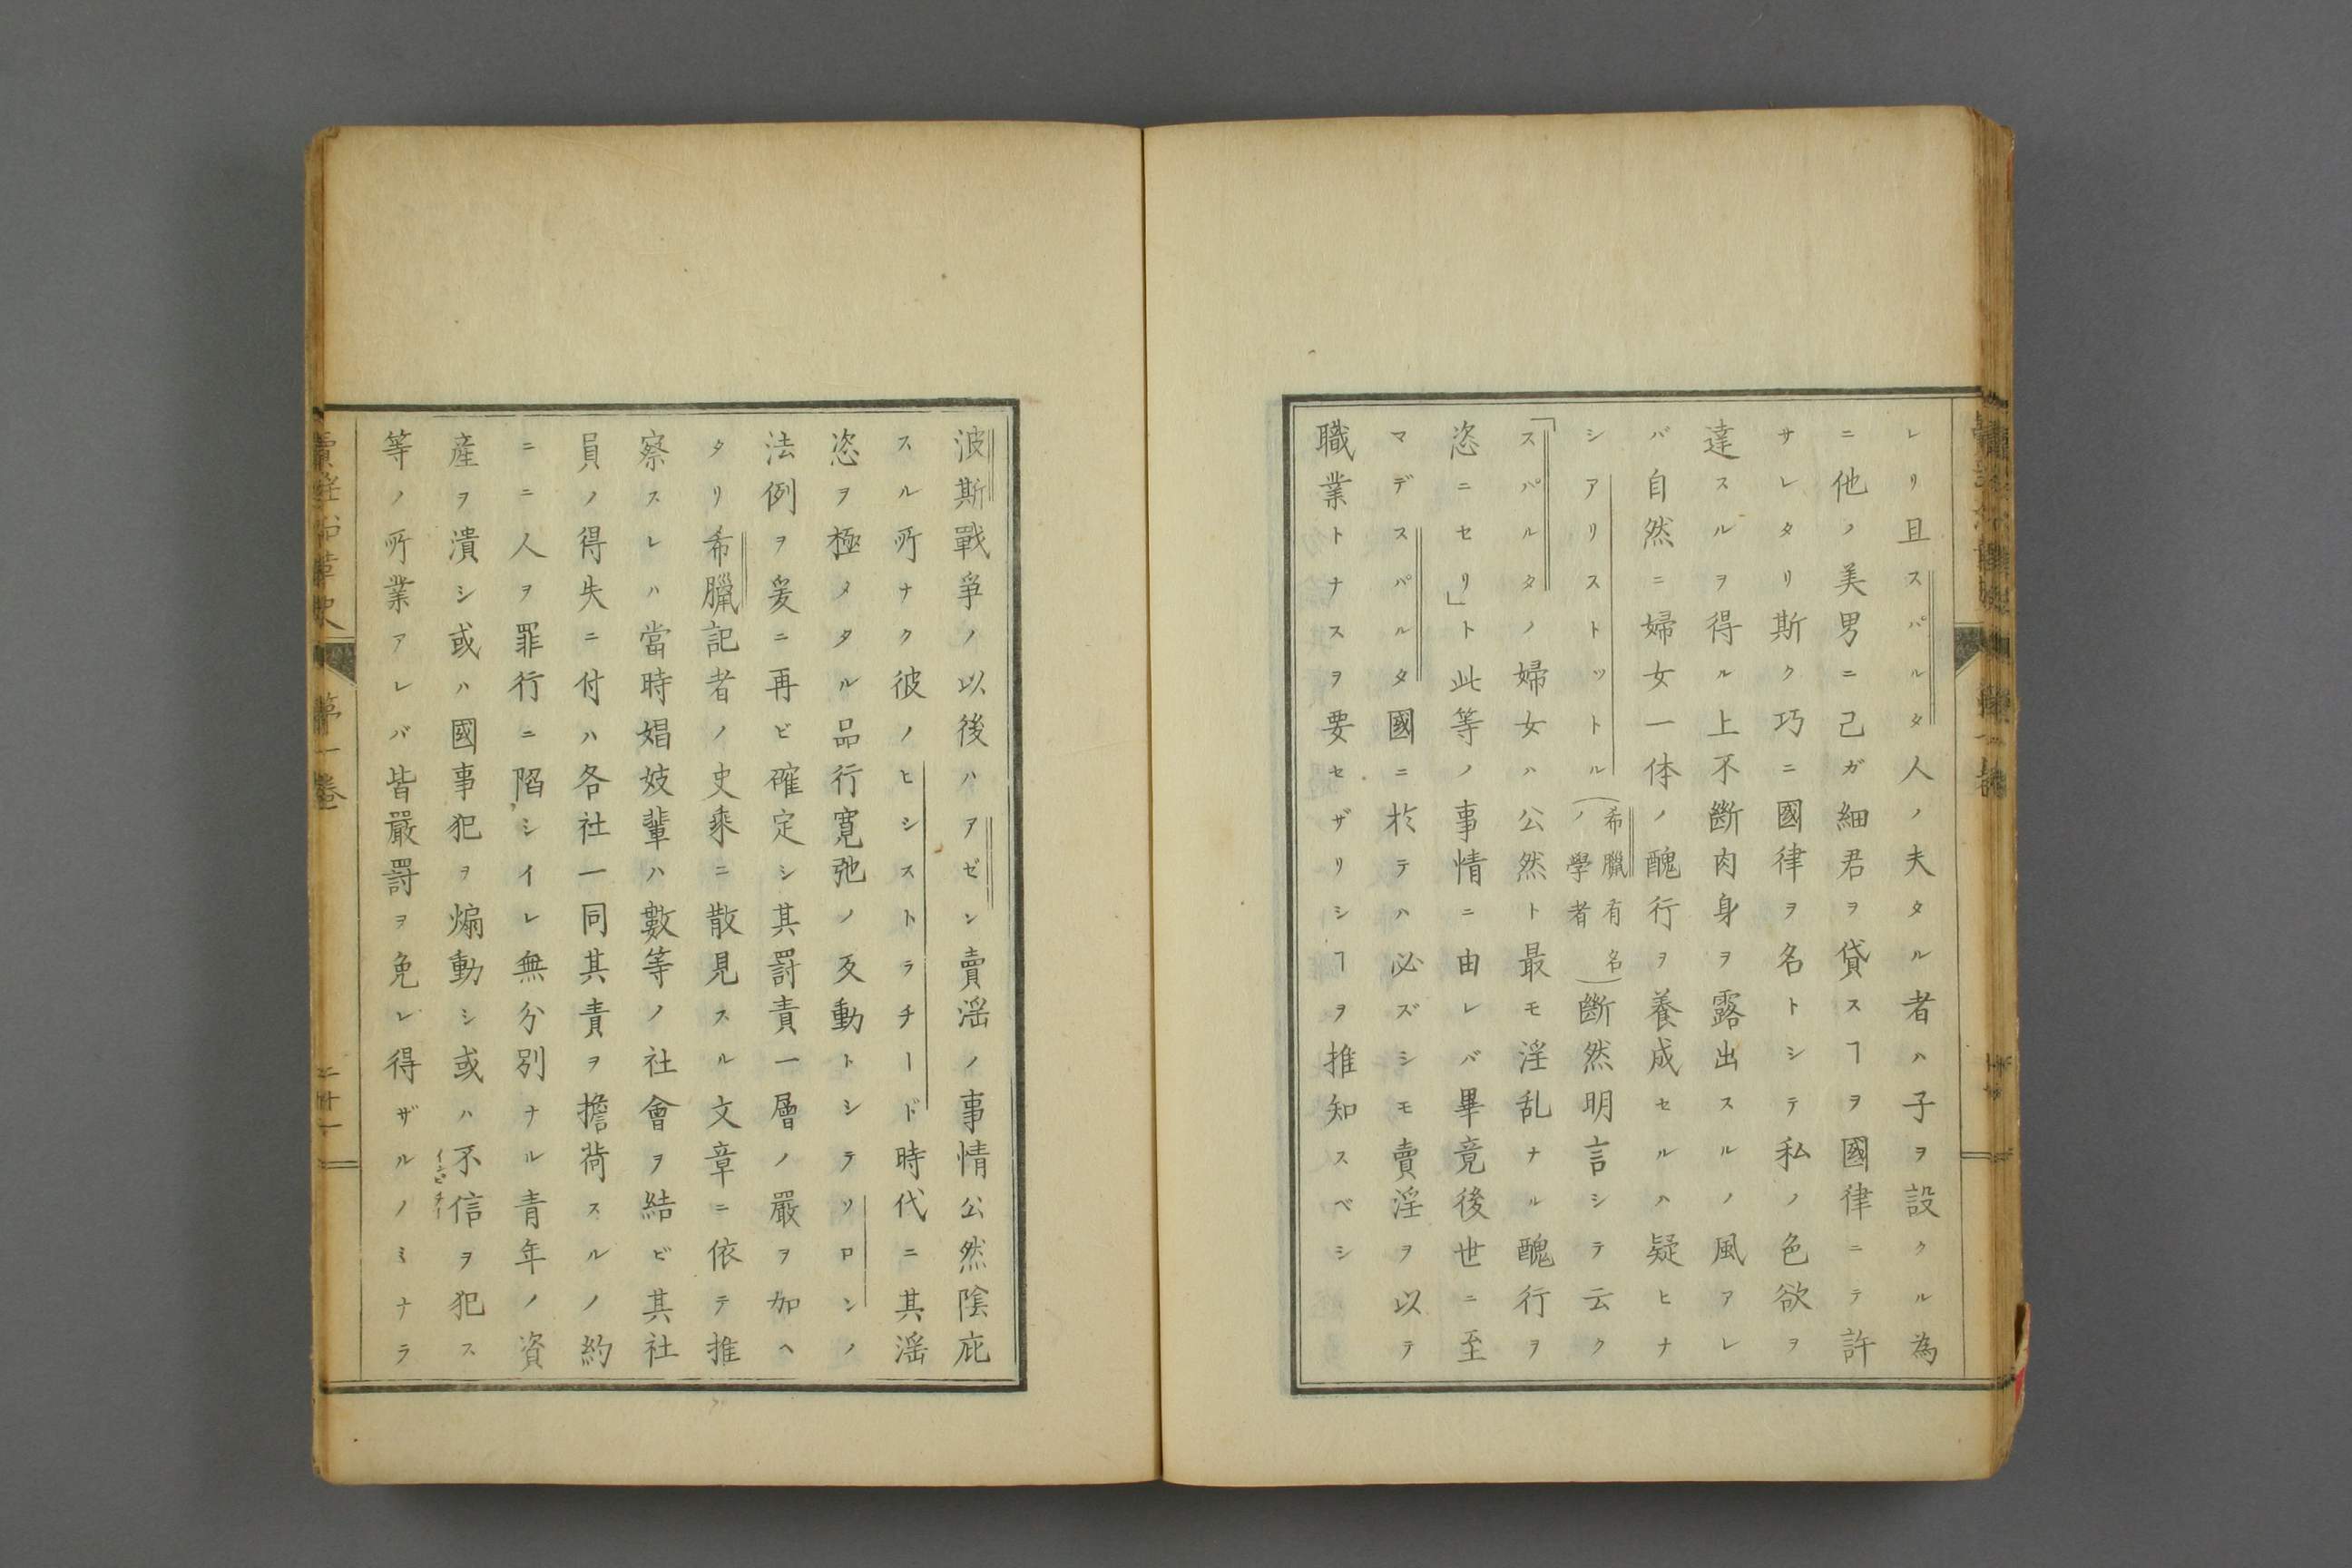 レリ且スパルタ人ノ夫タル者ハ子ヲ設クル為
ニ他ノ美男ニ己ガ細君ヲ貸スヿヲ國律ニテ許
サレタリ斯ク巧ニ國律ヲ名トシテ私ノ色欲ヲ
達スルヲ得ル上不斷肉身ヲ露出スルノ風アレ
バ自然ニ婦女一体ノ醜行ヲ養成セルハ疑ヒナ
シアリストットル(希臘有名ノ學者)斷然明言シテ云ク
「スパルタノ婦女ハ公然ト最モ淫乱ナル醜行ヲ
恣ニセリ」ト此等ノ事情ニ由レバ畢竟後世ニ至
マデスパルタ國ニ於テハ必ズシモ賣淫ヲ以テ
職業トナスヲ要セザリシヿヲ推知スベシ
波斯戰爭ノ以後ハアゼン賣淫ノ事情公然陰庇
スル所ナク彼ノヒシストラチード時代ニ其淫
恣ヲ極メタル品行寛弛ノ反動トシテソロンノ
法例ヲ爰ニ再ビ確定シ其罰責一層ノ嚴ヲ加ヘ
タリ希臘記者ノ史乘ニ散見スル文章ニ依テ推
察スレハ當時娼妓輩ハ數等ノ社會ヲ結ビ其社
員ノ得失ニ付ハ各社一同其責ヲ擔荷スルノ約
ニニ人ヲ罪行ニ陷シイレ無分別ナル青年ノ資
産ヲ潰シ或ハ國事犯ヲ煽動シ或ハ不信ヲ犯ス
等ノ所業アレバ皆嚴罸ヲ免レ得ザルノミナラ
賣淫沿革史
第一卷
二十一